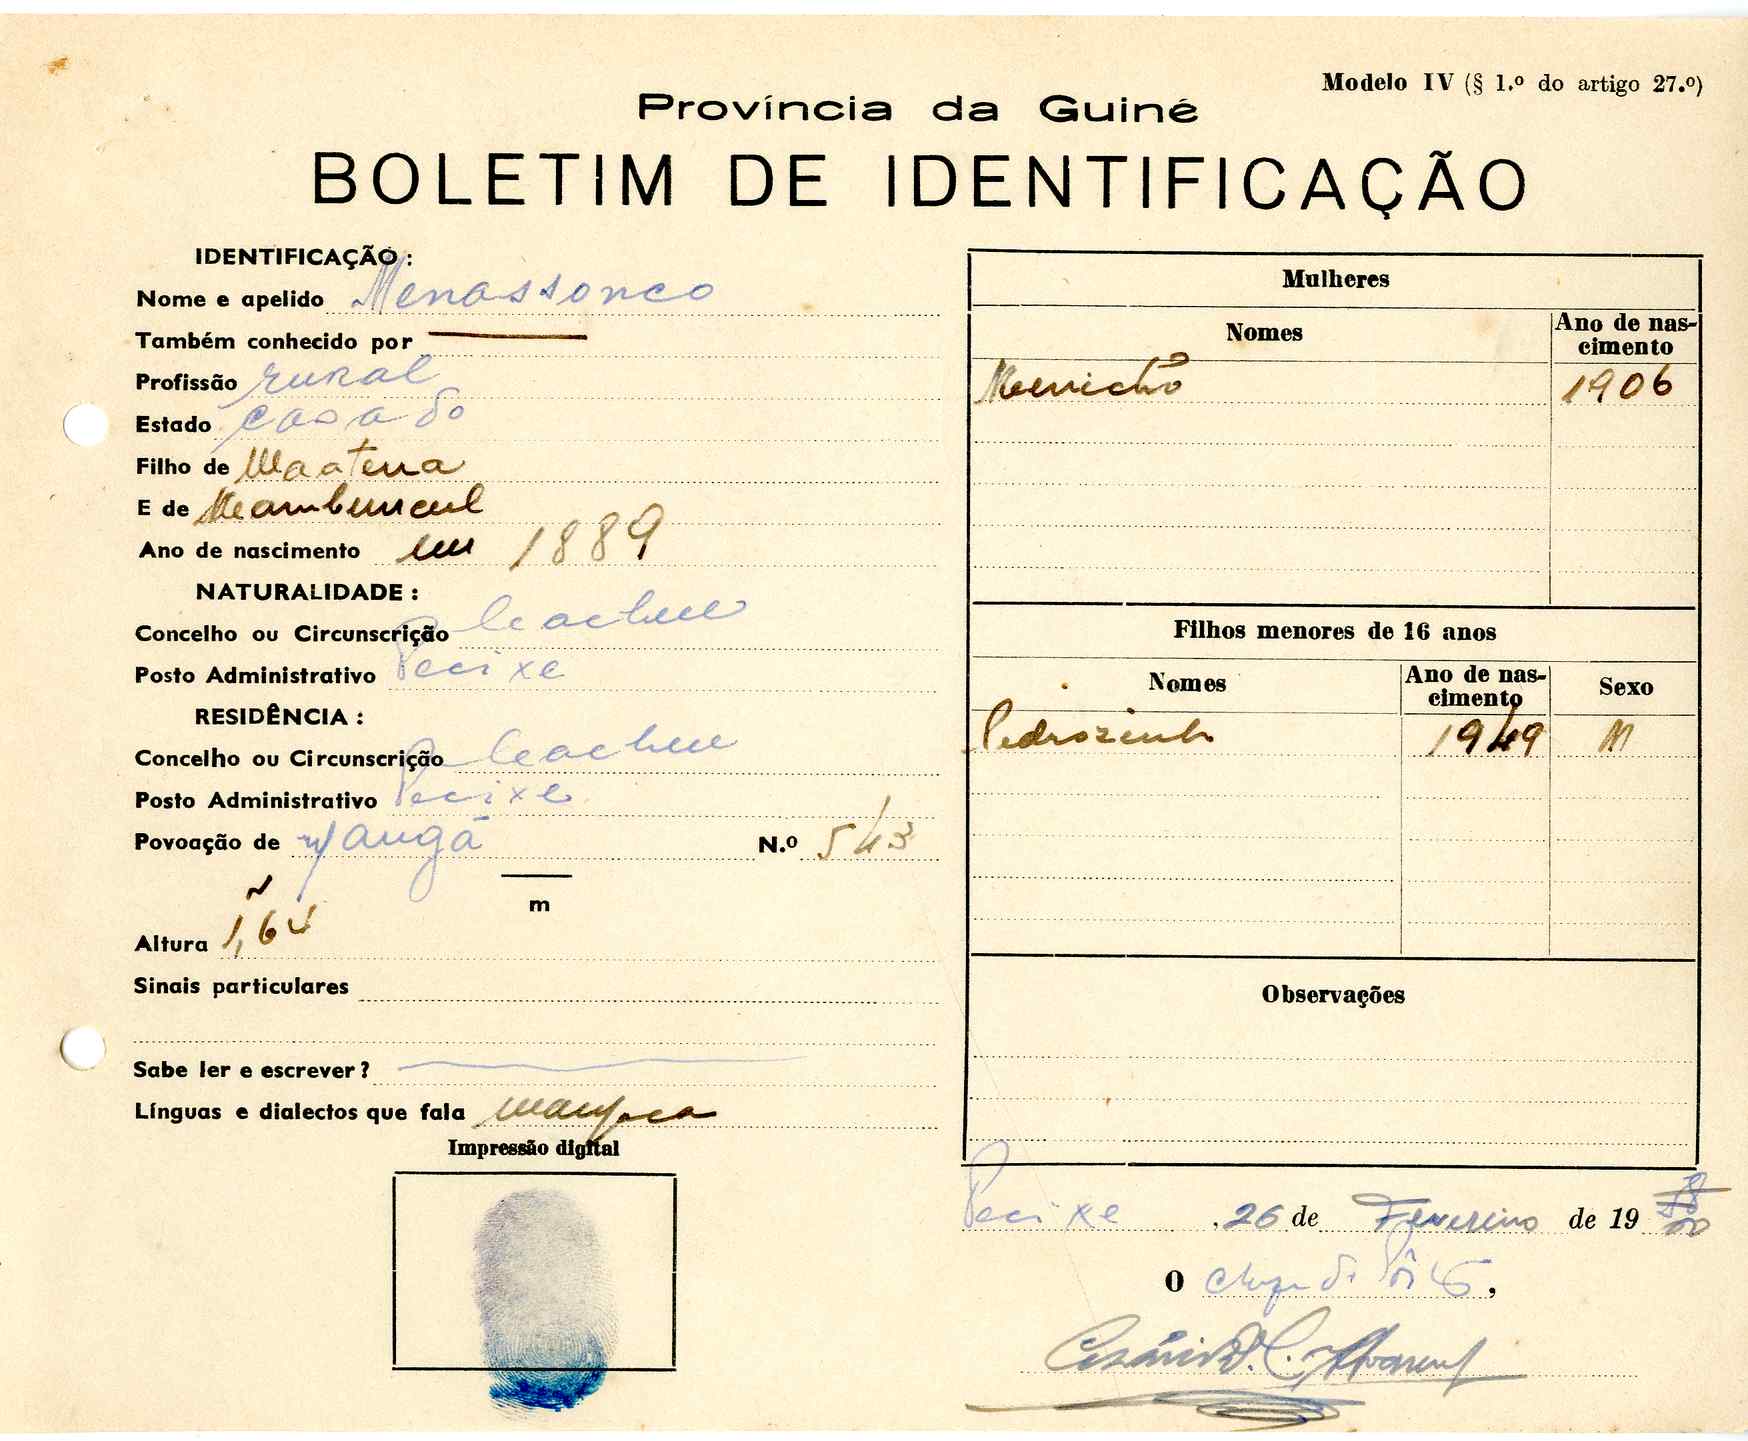 Modelo IV (§ 1.º do artigo 27.º)
Província da Guiné
BOLETIM DE IDENTIFICAÇÃO
IDENTIFICAÇÃO :
Nome e apelido Menassonco
Também conhecido por
Profissão rural
Estado casado
Filho de Maatena
E de
Ano de nascimento em 1889
NATURALIDADE :
Concelho ou Circunscrição Cacheu
Posto Administrativo Pecixe
RESIDÊNCIA :
Concelho ou Circunscrição Cacheu
Posto Administrativo Pecixe
Povoação de N.º 543
m
Altura 1,64
Sinais particulares
Sabe ler e escrever?
Línguas e dialectos que fala manjaca
Impressão digital
Mulheres
Nomes
Ano de nas-
cimento
1906
Filhos menores de 16 anos
Nomes
Ano de nas-
cimento
Sexo
Pedrozinh 1949 M
Observações
Pecixe, 26 de Fevereiro de 19
O chefe de Pôsto,